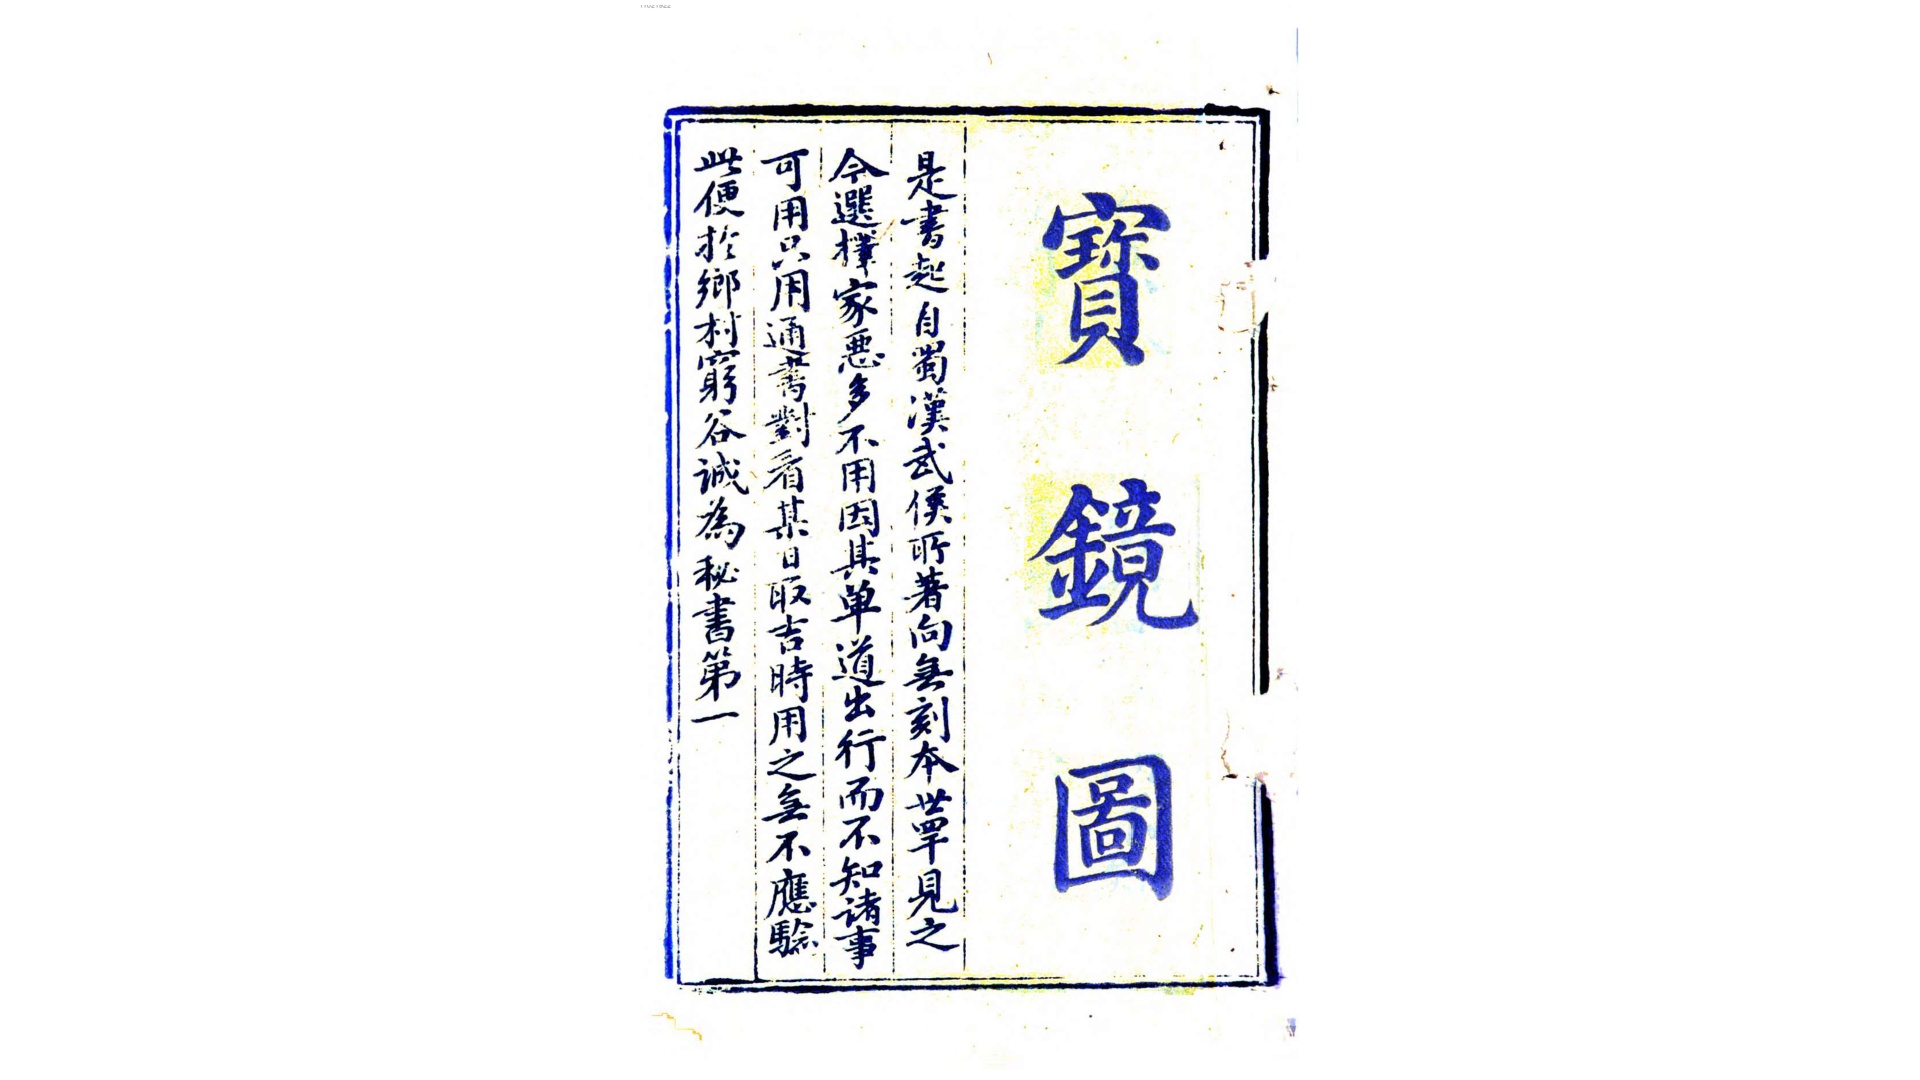 寶鏡圖
是書起自蜀漢武侯所著向無刻本世罕見之
今選擇家惡多不用因其单道出行而不知諸事
可用只用通書對看某日取吉時用之無不應驗
此便於鄉村窮谷誠為秘書第一